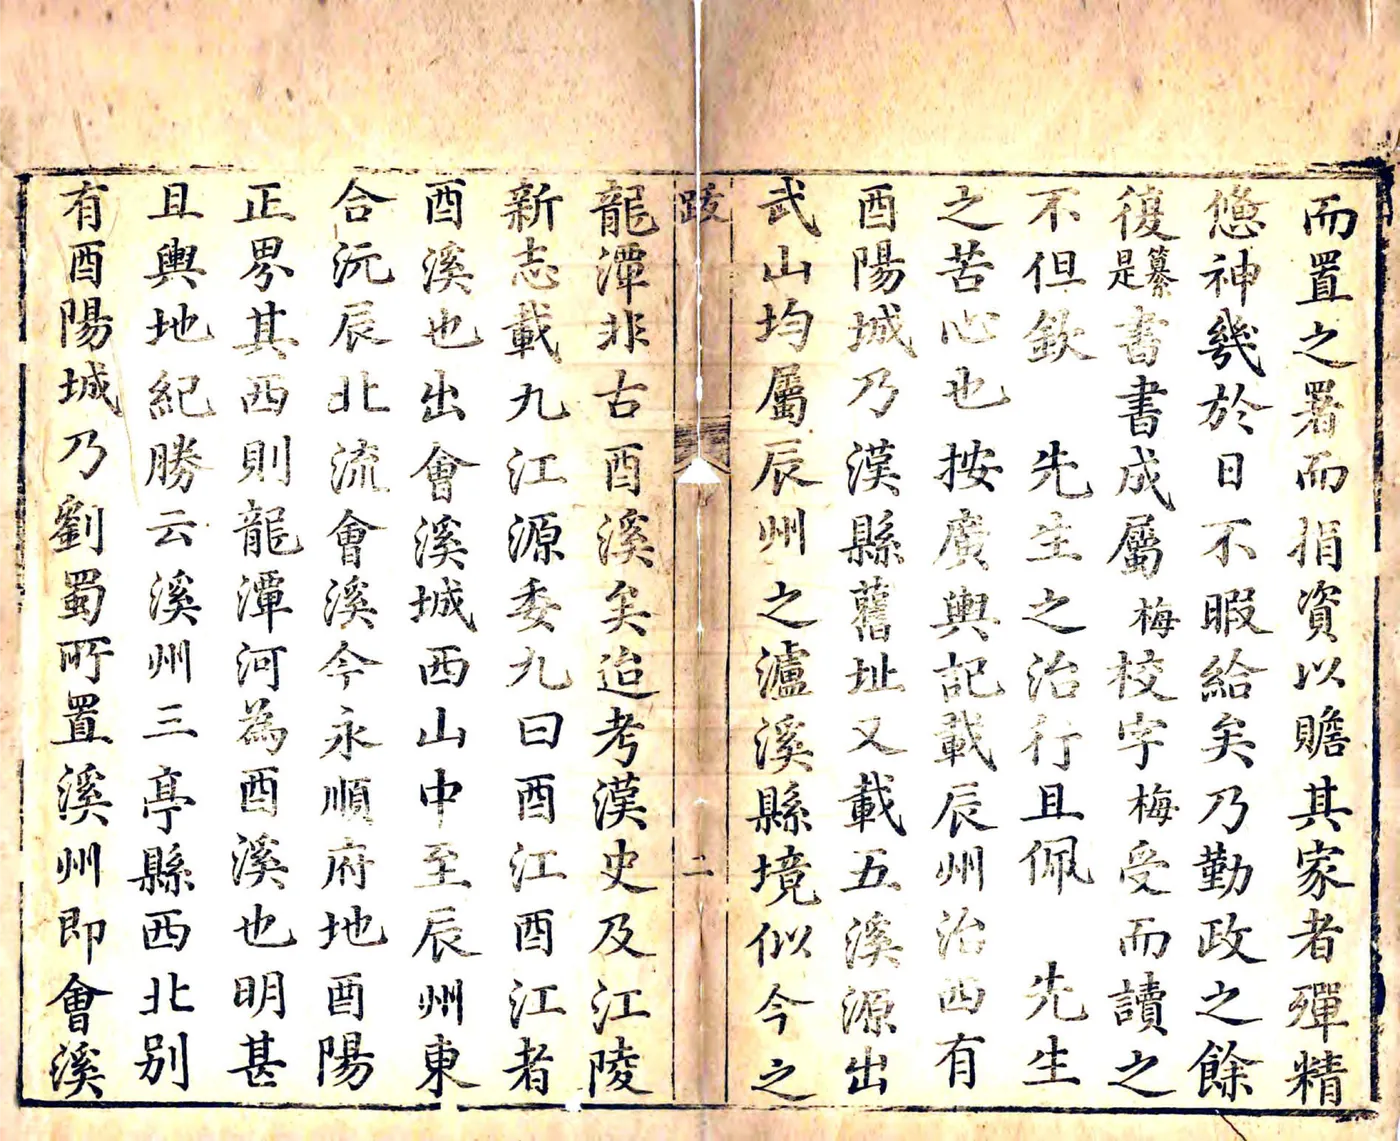 而置之署而捐資以贍其家者殫精
憊神幾於日不暇給矣乃勤政之餘
復纂是書書成屬梅校字梅受而讀之
不但欽　先生之治行且佩　先生
之苦心也按廣輿記載辰州治西有
酉陽城乃漢縣舊址又載五溪源出
武山均屬辰州之瀘溪縣境似今之
跋
二
龍潭非古酉溪矣迨考漢史及江陵
新志載九江源委九曰酉江酉江者
酉溪也出會溪城西山中至辰州東
合沅辰北流會溪今永順府地酉陽
正界其西則龍潭河為酉溪也明甚
且輿地紀勝云溪州三亭縣西北别
有酉陽城乃劉蜀所置溪州即會溪